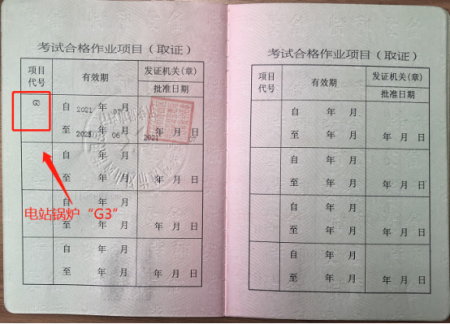 考试合格作业项目（取证）
项目代号 有效期 发证机关(章)
批准日期
G3 自 2021 年 月
至 2025 年 06 月 2021 年 月 日
自 年 月
至 年 月 年 月 日
自 年 月
至 年 月 年 月 日
自 年 月
至 年 月 年 月 日
电站锅炉“G3”
考试合格作业项目（取证）
项目代号 有效期 发证机关(章)
批准日期
自 年 月
至 年 月 年 月 日
自 年 月
至 年 月 年 月 日
自 年 月
至 年 月 年 月 日
自 年 月
至 年 月 年 月 日